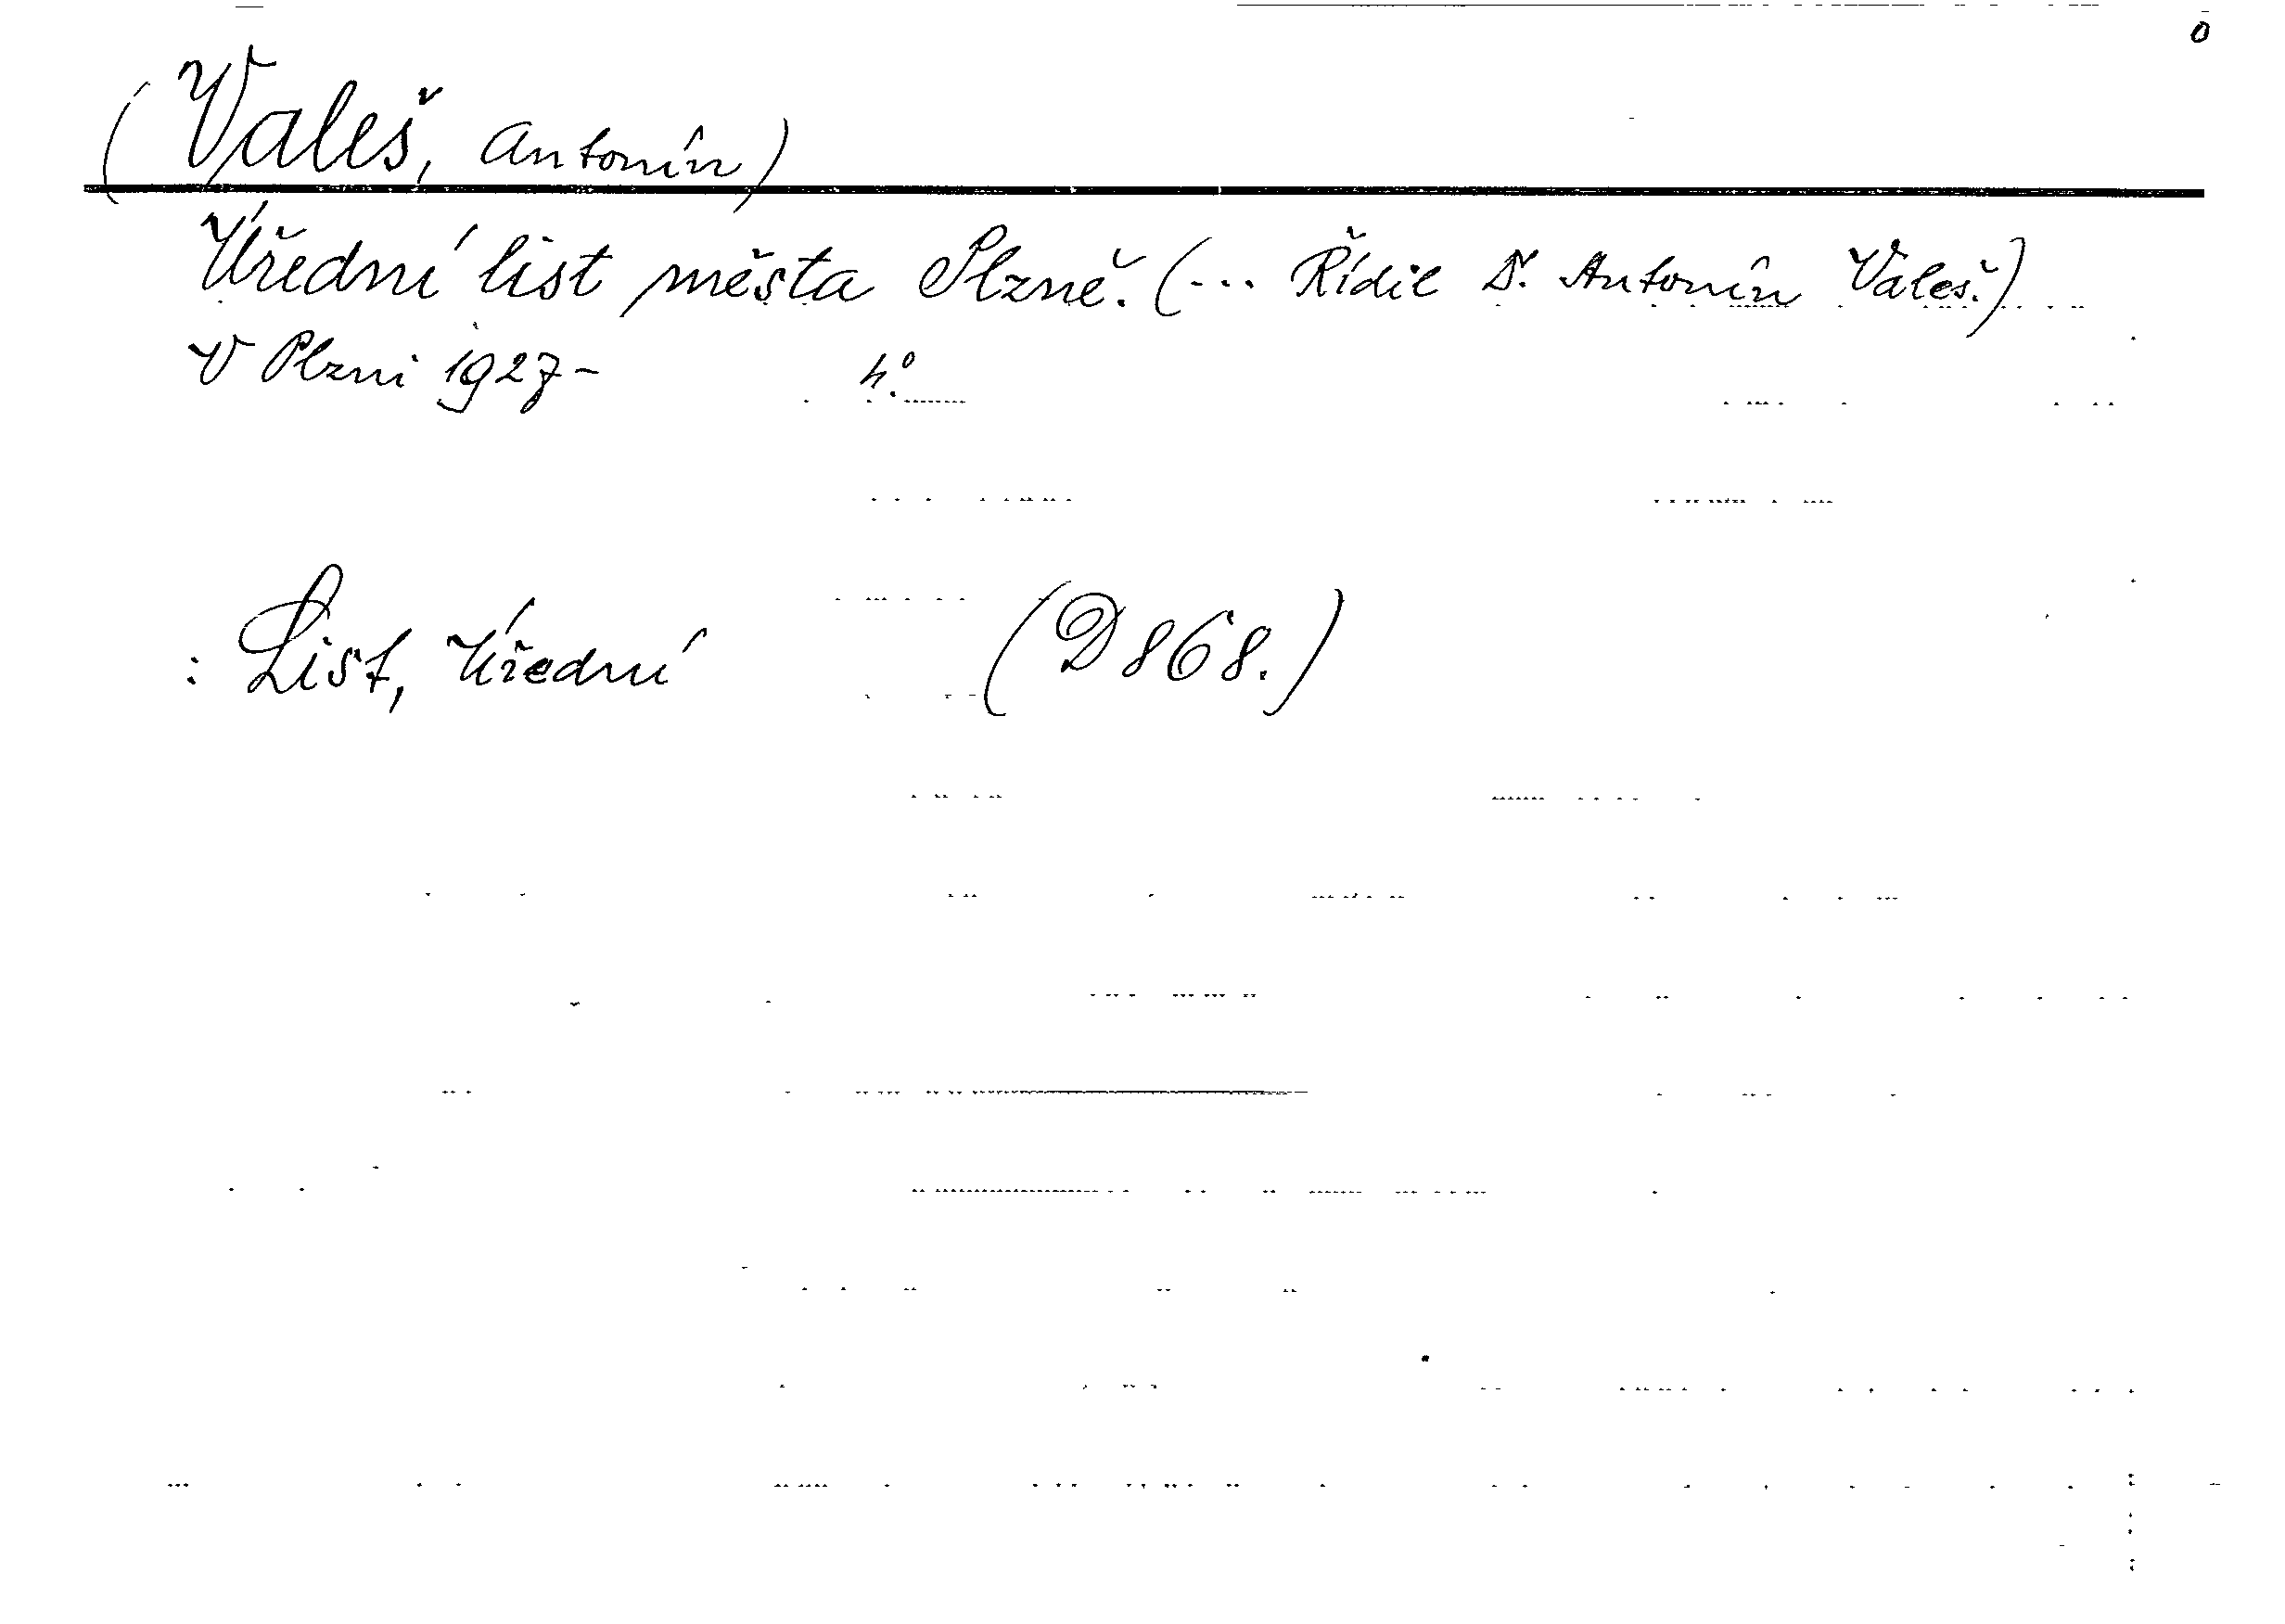 0
(Valeš, Antonín)
Úřední list města Plzně. (... Řídil Dr. Antonín Valeš.)
V Plzni 1927- 4°.
: List, Úřední (D 868.)